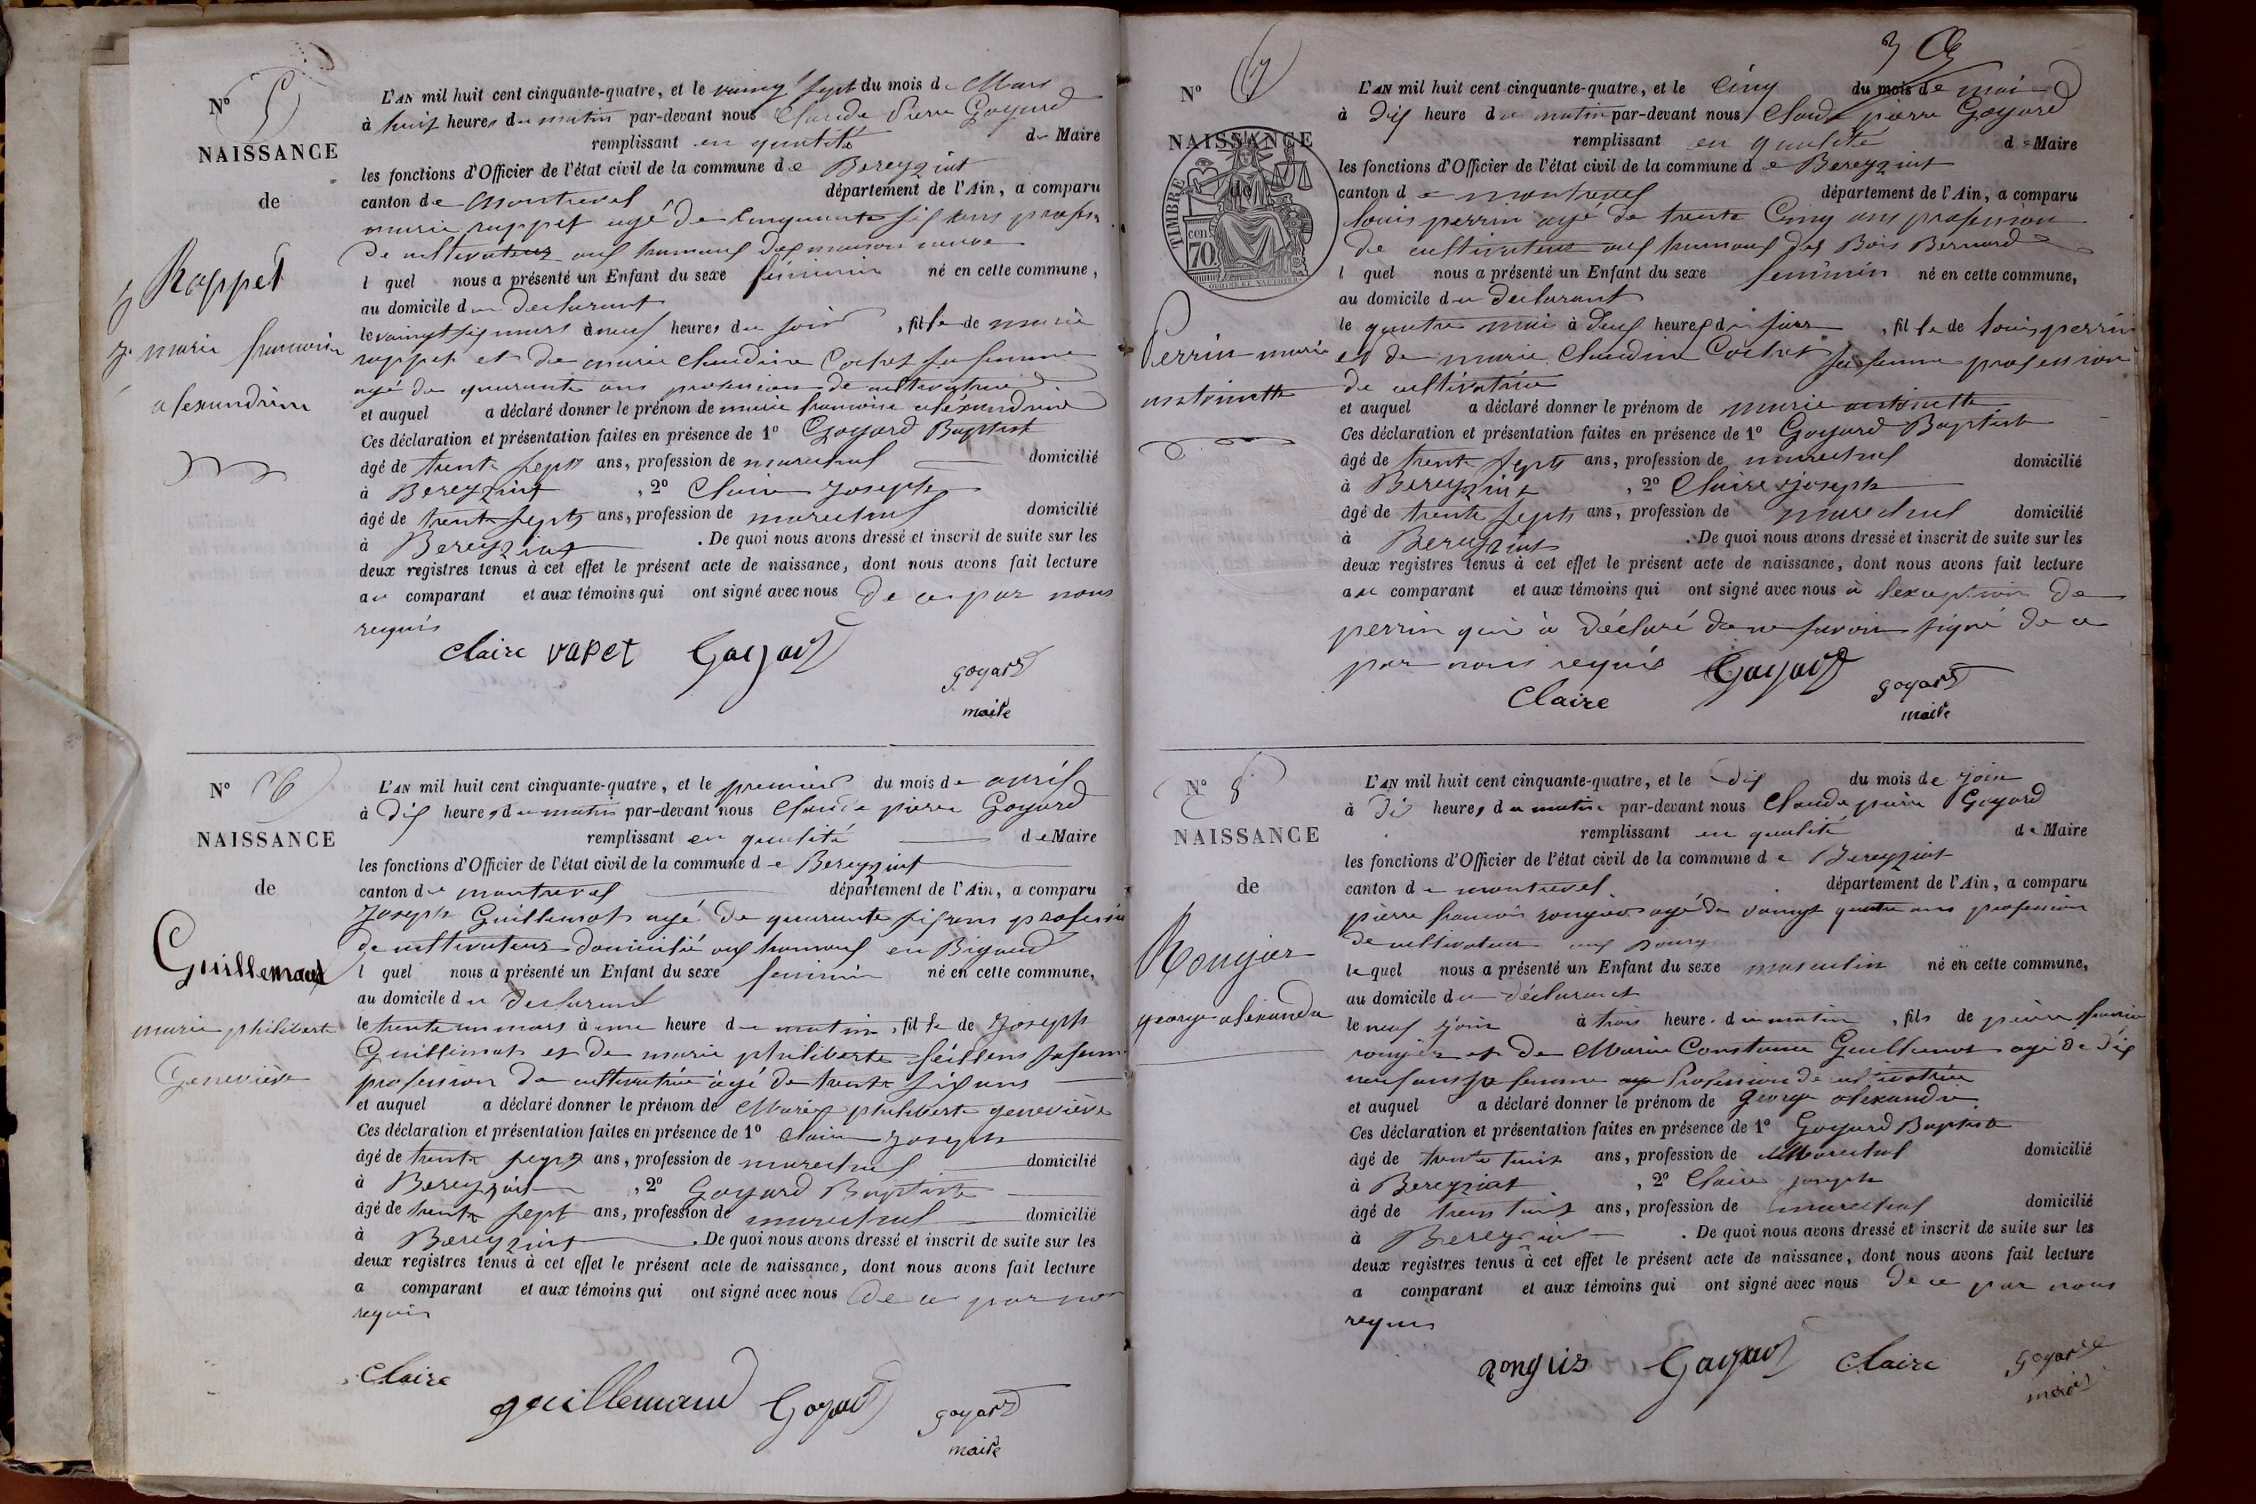 N° 5
NAISSANCE
de
Rappet
marie francoise
alexandrine
L'AN mil huit cent cinquante-quatre, et le vaingt sept du mois de Mars
à huit heures du matin par-devant nous Claude Pierre Goyard
remplissant en qualité de Maire
les fonctions d'Officier de l'état civil de la commune de Bereyziat
canton de Montrevel département de l'Ain, a comparu
marie rappet agé de Cinquante six ans profession
de cultivateur aux hameaux des maison neuve
l quel nous a présenté un Enfant du sexe féminin né en cette commune,
au domicile du declarant
le vaingt six mars à neuf heures du soir, fille de marie
rappet et de marie Claudine Cochet sa femme
agé de quarante ans profession de cultivatrice
et auquel a déclaré donner le prénom de marie francoise alexandrine
Ces déclaration et présentation faites en présence de 1° Goyard Baptiste
âgé de trente sept ans, profession de marechal domicilié
à Bereyziat, 2° Claire Joseph
âgé de trente sept ans, profession de marechal domicilié
à Bereyziat. De quoi nous avons dressé et inscrit de suite sur les
deux registres tenus à cet effet le présent acte de naissance, dont nous avons fait lecture
au comparant et aux témoins qui ont signé avec nous de ce par nous
requis
Claire rapet Goyard
goyard
maire
N° 6
NAISSANCE
de
Guillemaud
marie philiberte
Geneviève
L'AN mil huit cent cinquante-quatre, et le premier du mois de avril
à dix heures du matin par-devant nous Claude pierre Goyard
remplissant en qualité de Maire
les fonctions d'Officier de l'état civil de la commune de Bereyziat
canton de montrevel département de l'Ain, a comparu
Joseph Guillemot agé de quarante six ans profession
de cultivateur domicilié aux hameaux en Biguard
l quel nous a présenté un Enfant du sexe feminin né en cette commune,
au domicile du declarant
le trente un mars à une heure du matin, fille de Joseph
Guillemot et de marie philiberte feillens sa femme
profession de cultivatrice agé de trente six ans
et auquel a déclaré donner le prénom de Marie philiberte geneviève
Ces déclaration et présentation faites en présence de 1° Claire Joseph
âgé de trente sept ans, profession de marechal domicilié
à Bereyziat, 2° Goyard Baptiste
âgé de trente sept ans, profession de marechal domicilié
à Bereyziat. De quoi nous avons dressé et inscrit de suite sur les
deux registres tenus à cet effet le présent acte de naissance, dont nous avons fait lecture
a comparant et aux témoins qui ont signé avec nous de ce par nous
requis
Claire
guillemaud Goyard goyard
maire
N° 7
NAISSANCE
TIMBRE
cen 70
Perrin marie
antoinette
L'AN mil huit cent cinquante-quatre, et le cinq du mois de mai
à dix heure du matin par-devant nous Claude pierre Goyard
remplissant en qualité de Maire
les fonctions d'Officier de l'état civil de la commune de Bereyziat
canton de montrevel département de l'Ain, a comparu
louis perrin agé de trente Cinq ans profession
de cultivateur aux hameaux des Bois Bernard
l quel nous a présenté un Enfant du sexe feminin né en cette commune,
au domicile du declarant
le quatre mai à deux heures du soir, fille de louis perrin
et de marie Claudine Cochet sa femme profession
de cultivatrice
et auquel a déclaré donner le prénom de marie antoinette
Ces déclaration et présentation faites en présence de 1° Goyard Baptiste
âgé de trente sept ans, profession de marechal domicilié
à Bereyziat, 2° Claire Joseph
âgé de trente sept ans, profession de marechal domicilié
à Bereyziat. De quoi nous avons dressé et inscrit de suite sur les
deux registres tenus à cet effet le présent acte de naissance, dont nous avons fait lecture
au comparant et aux témoins qui ont signé avec nous à lexception de
perrin qui à déclaré de ne savoir signé de ce
par nous requis Goyard
Claire goyard
maire
N° 8
NAISSANCE
de
Rongier
george alexandre
L'AN mil huit cent cinquante-quatre, et le dix du mois de join
à dis heures du matin par-devant nous Claude pierre Goyard
remplissant en qualité de Maire
les fonctions d'Officier de l'état civil de la commune de Bereyziat
canton de montrevel département de l'Ain, a comparu
pierre francois rongier agé de vaingt quatre ans profession
de cultivateur aux Bourg
le quel nous a présenté un Enfant du sexe masculin né en cette commune,
au domicile du déclarant
le neuf join à trois heure du matin, fils de pierre francois
rongier et de Marie Constance Guillemot agé de dix
neuf ans sa femme Profession de cultivatrice
et auquel a déclaré donner le prénom de George alexandre
Ces déclaration et présentation faites en présence de 1° Goyard Baptiste
âgé de trente huit ans, profession de Marechal domicilié
à Bereyziat, 2° Claire joseph
âgé de ans, profession de marechal domicilié
à Bereyziat. De quoi nous avons dressé et inscrit de suite sur les
deux registres tenus à cet effet le présent acte de naissance, dont nous avons fait lecture
a comparant et aux témoins qui ont signé avec nous de ce par nous
requis
Goyard Claire goyard
maire